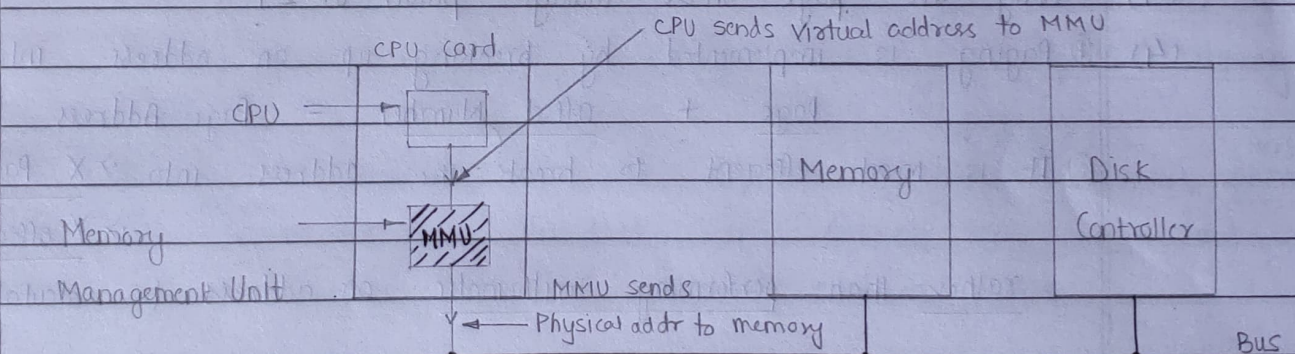 CPU sends Virtual address to MMU
CPU card
CPU
Memory
Disk
Controller
MMU
Memory
Management Unit
MMU sends
Physical addr to memory
Bus